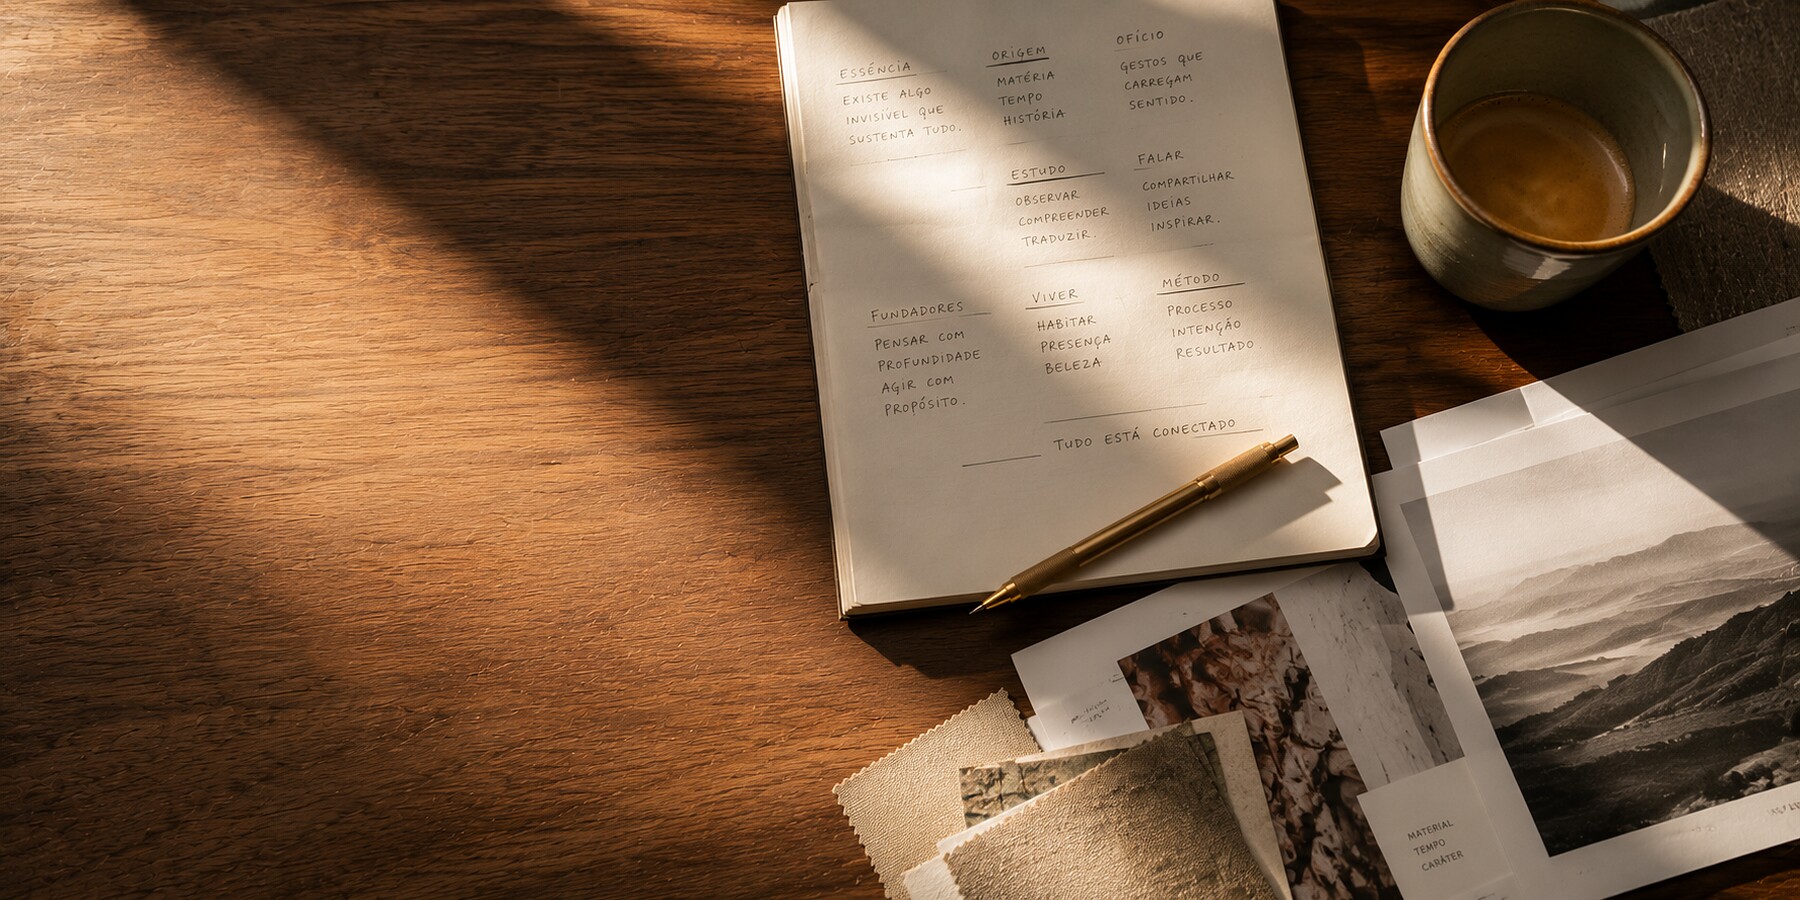 ESSÉNCIA
EXISTE ALGO
INVISÍVEL QUE
SUSTENTA TUDO.
ORIGEM
MATÉRIA
TEMPO
HISTÓRIA
OFÍCIO
GESTOS QUE
CARREGAM
SENTIDO.
ESTUDO
OBSERVAR
COMPREENDER
TRADUZIR.
FALAR
COMPARTILHAR
IDEIAS
INSPIRAR.
FUNDADORES
PENSAR COM
PROFUNDIDADE
AGIR COM
PROPÓSITO.
VIVER
HABITAR
PRESENÇA
BELEZA
MÉTODO
PROCESSO
INTENÇÃO
RESULTADO
TUDO ESTÁ CONECTADO
MATERIAL
TEMPO
CARÁTER